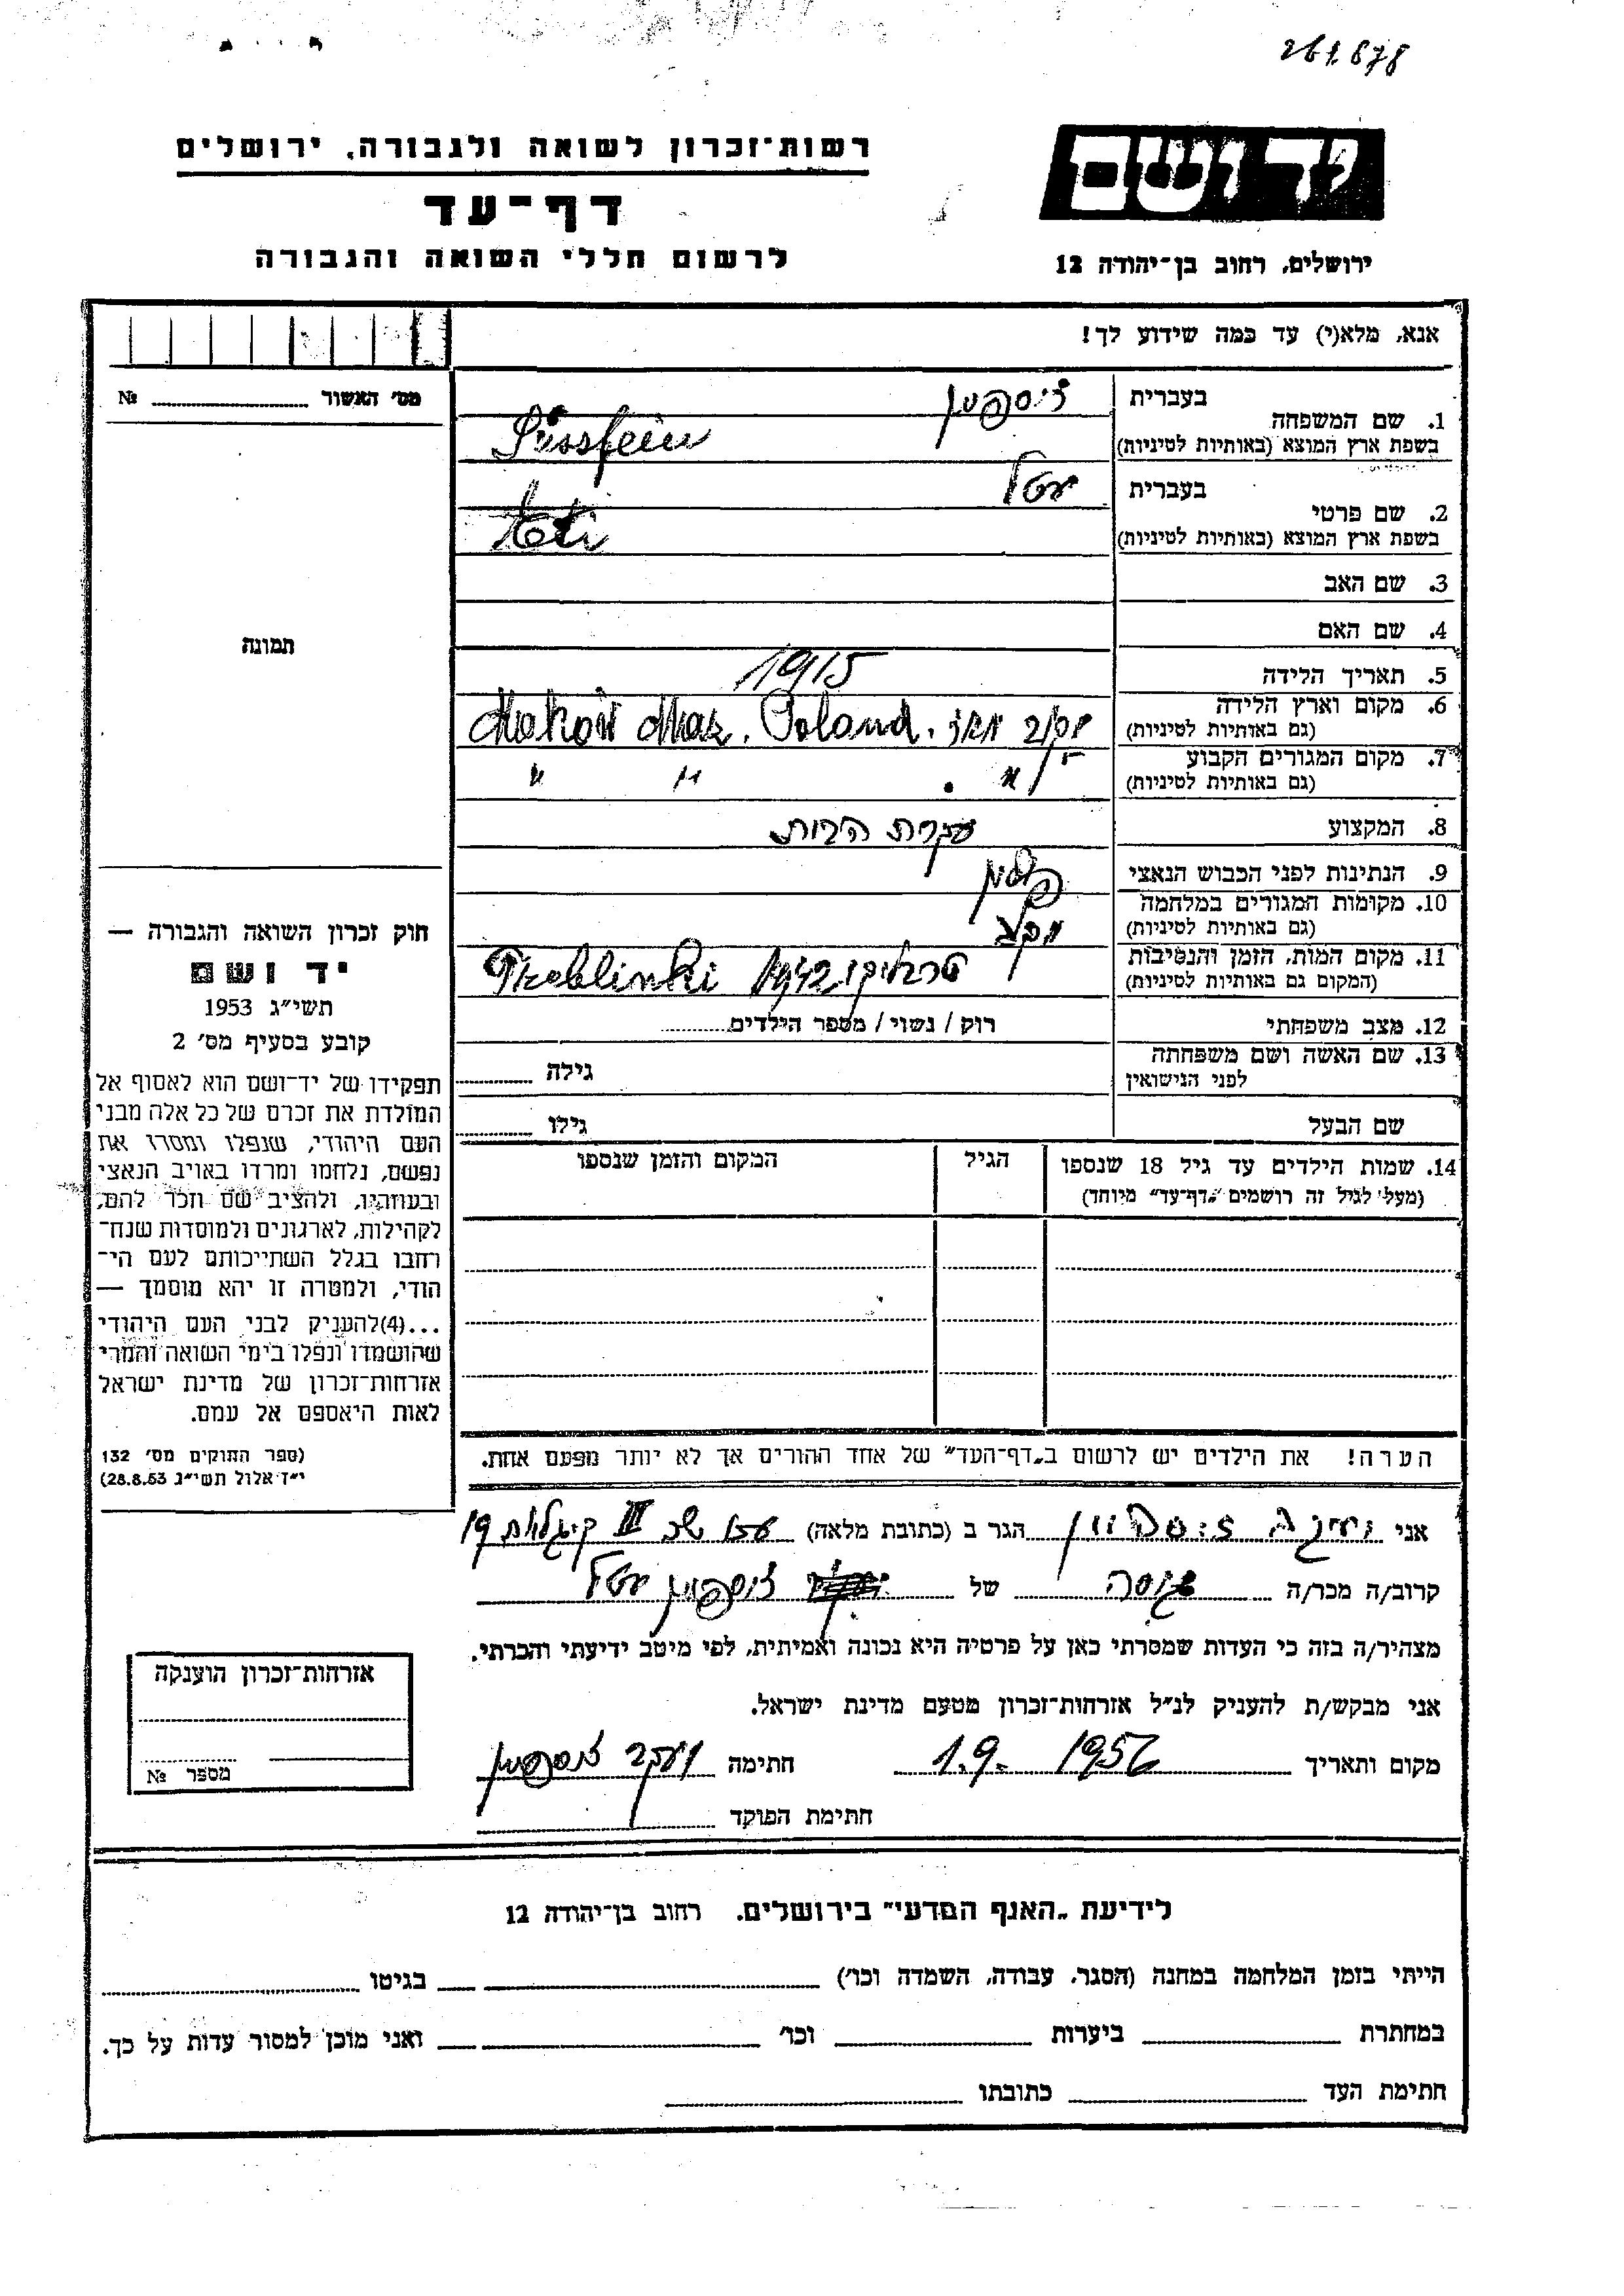 261.678
רשות־זכרון לשואה ולגבורה, ירושלים
יד ושם
דף־עד
לרשום חללי השואה והגבורה
ירושלים, רחוב בן־יהודה 12
אנא, מלא(י) עד כמה שידוע לך!
מס׳ האשור № 
1. שם המשפחה
בעברית זיספיין
בשפת ארץ המוצא (באותיות לטיניות) Süssfein
2. שם פרטי
בעברית יטל
בשפת ארץ המוצא (באותיות לטיניות)
3. שם האב
4. שם האם
תמונה
5. תאריך הלידה 1915
6. מקום וארץ הלידה
(גם באותיות לטיניות) Makow Maz. Poland.
7. מקום המגורים הקבוע
(גם באותיות לטיניות) " " . "
8. המקצוע עקרת הבית
9. הנתינות לפני הכבוש הנאצי
10. מקומות המגורים במלחמה
(גם באותיות לטיניות)
11. מקום המות, הזמן והנסיבות
(המקום גם באותיות לטיניות) 1942 Treblinki
12. מצב משפחתי רוק / נשוי / מספר הילדים
13. שם האשה ושם משפחתה
לפני הנישואין גילה
שם הבעל גילו
14. שמות הילדים עד גיל 18 שנספו
(מעל לגיל זה רושמים „דף־עד״ מיוחד)
הגיל
המקום והזמן שנספו
הערה! את הילדים יש לרשום ב„דף־העד״ של אחד ההורים אך לא יותר מפעם אחת.
חוק זכרון השואה והגבורה —
יד ושם
תשי״ג 1953
קובע בסעיף מס׳ 2
תפקידו של יד־ושם הוא לאסוף אל
המולדת את זכרם של כל אלה מבני
העם היהודי, שנפלו ומסרו את
נפשם, נלחמו ומרדו באויב הנאצי
ובעוזריו, ולהציב שם וזכר להם,
לקהילות, לארגונים ולמוסדות שנח־
רחבו בגלל השתייכותם לעם הי־
הודי, ולמטרה זו יהא מוסמך —
...(4)להעניק לבני העם היהודי
שהושמדו ונפלו בימי השואה והמרי
אזרחות־זכרון של מדינת ישראל
לאות היאספם אל עמם.
(ספר החוקים מס׳ 132
י״ד אלול תשי״ג 28.8.53)
אני הגר ב (כתובת מלאה) III 19
קרוב/ה מכר/ה של זיספיין יטל
מצהיר/ה בזה כי העדות שמסרתי כאן על פרטיה היא נכונה ואמיתית, לפי מיטב ידיעתי והכרתי.
אני מבקש/ת להעניק לנ״ל אזרחות־זכרון מטעם מדינת ישראל.
מקום ותאריך 1.9. 1956 חתימה יעקב זיספיין
חתימת הפוקד
אזרחות־זכרון הוענקה
מספר №
לידיעת „האנף המדעי״ בירושלים, רחוב בן־יהודה 12
הייתי בזמן המלחמה במחנה (הסגר, עבודה, השמדה וכו׳) בגיטו
במחתרת ביערות וכו׳ ואני מוכן למסור עדות על כך.
חתימת העד כתובתו